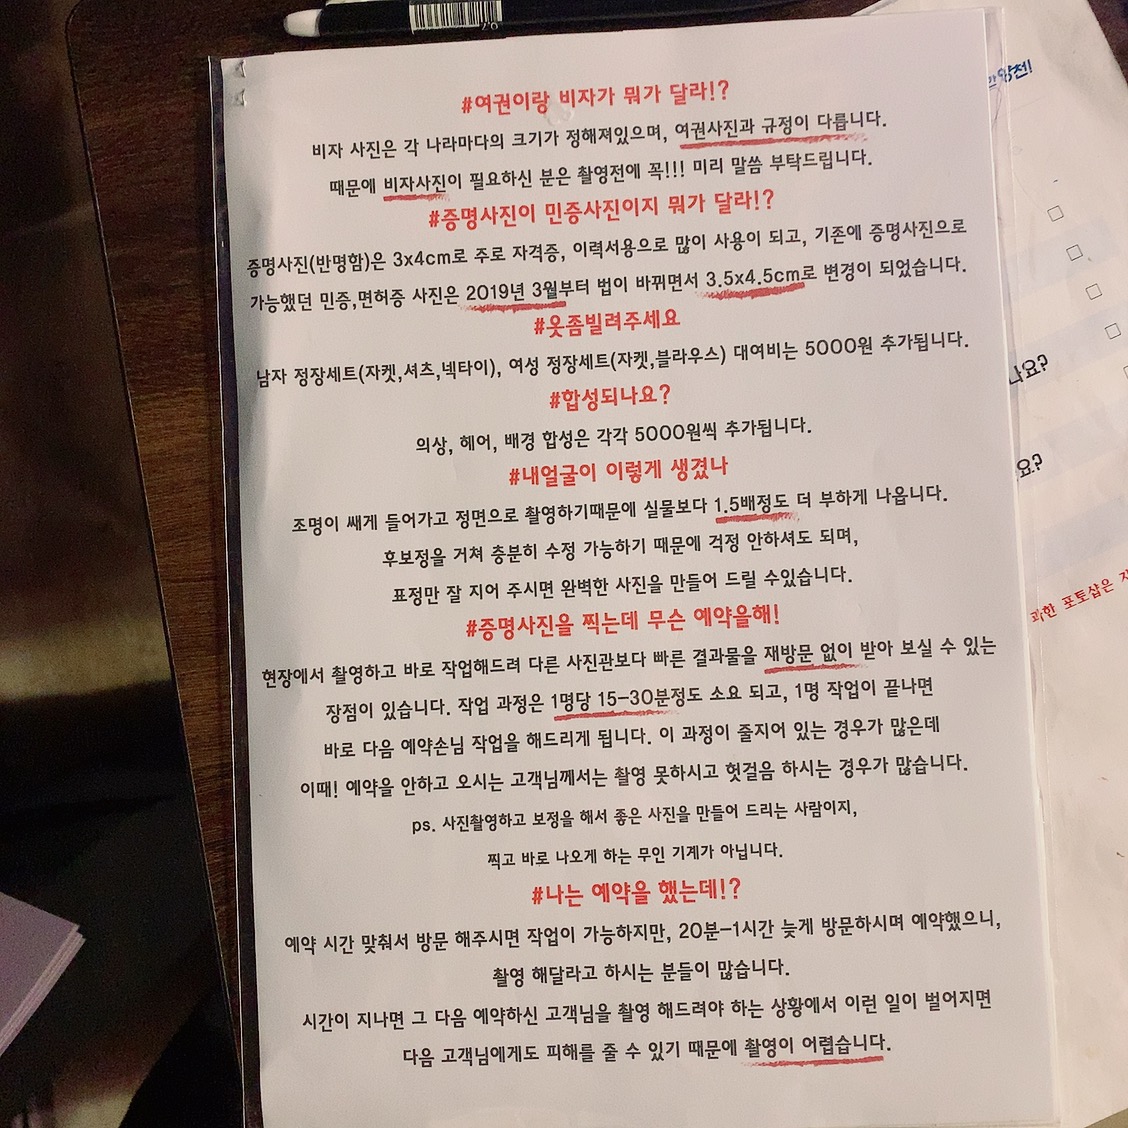 #여권이랑 비자가 뭐가 달라!?
비자 사진은 각 나라마다의 크기가 정해져있으며, 여권사진과 규정이 다릅니다.
때문에 비자사진이 필요하신 분은 촬영전에 꼭!!! 미리 말씀 부탁드립니다.
#증명사진이 민증사진이지 뭐가 달라!?
증명사진(반명함)은 3x4cm로 주로 자격증, 이력서용으로 많이 사용이 되고, 기존에 증명사진으로
가능했던 민증,면허증 사진은 2019년 3월부터 법이 바뀌면서 3.5x4.5cm로 변경이 되었습니다.
#옷좀빌려주세요
남자 정장세트(자켓,셔츠,넥타이), 여성 정장세트(자켓,블라우스) 대여비는 5000원 추가됩니다.
#합성되나요?
의상, 헤어, 배경 합성은 각각 5000원씩 추가됩니다.
#내얼굴이 이렇게 생겼나
조명이 쌔게 들어가고 정면으로 촬영하기때문에 실물보다 1.5배정도 더 부하게 나옵니다.
후보정을 거쳐 충분히 수정 가능하기 때문에 걱정 안하셔도 되며,
표정만 잘 지어 주시면 완벽한 사진을 만들어 드릴 수있습니다.
#증명사진을 찍는데 무슨 예약을해!
현장에서 촬영하고 바로 작업해드려 다른 사진관보다 빠른 결과물을 재방문 없이 받아 보실 수 있는
장점이 있습니다. 작업 과정은 1명당 15-30분정도 소요 되고, 1명 작업이 끝나면
바로 다음 예약손님 작업을 해드리게 됩니다. 이 과정이 줄지어 있는 경우가 많은데
이때! 예약을 안하고 오시는 고객님께서는 촬영 못하시고 헛걸음 하시는 경우가 많습니다.
ps. 사진촬영하고 보정을 해서 좋은 사진을 만들어 드리는 사람이지,
찍고 바로 나오게 하는 무인 기계가 아닙니다.
#나는 예약을 했는데!?
예약 시간 맞춰서 방문 해주시면 작업이 가능하지만, 20분-1시간 늦게 방문하시며 예약했으니,
촬영 해달라고 하시는 분들이 많습니다.
시간이 지나면 그 다음 예약하신 고객님을 촬영 해드려야 하는 상황에서 이런 일이 벌어지면
다음 고객님에게도 피해를 줄 수 있기 때문에 촬영이 어렵습니다.
나요?
요?
과한 포토샵은